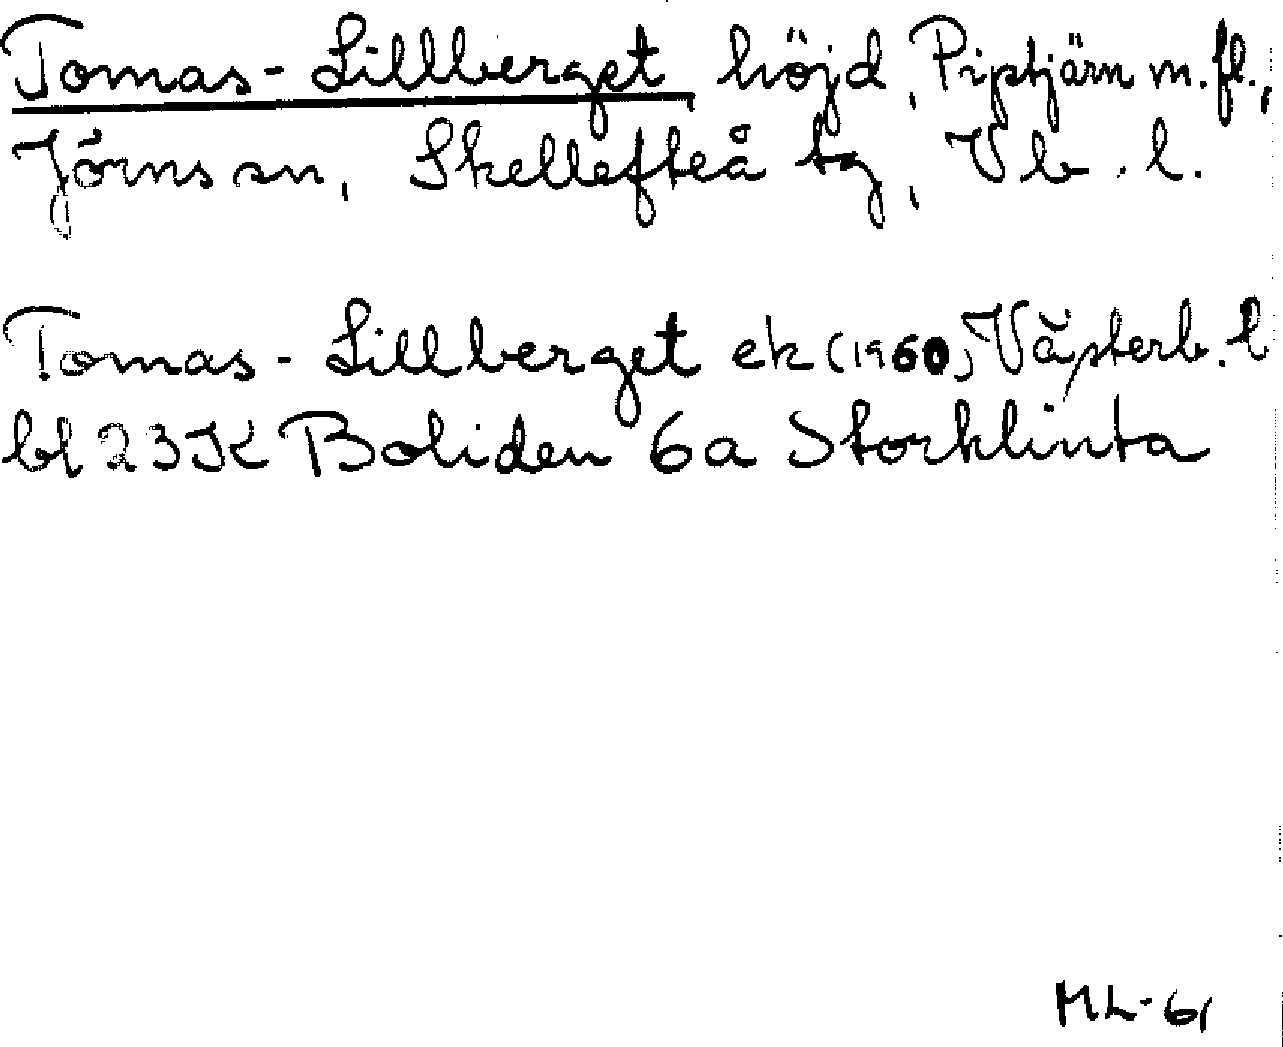 Tomas-Lillberget, höjd, Pipstjärn m.fl.,
Jörns sn, Skellefteå tg, Vb.l.
Tomas-Lillberget ek (1960) Västerb. l
bl 23K Boliden 6a Storklinta
ML-61